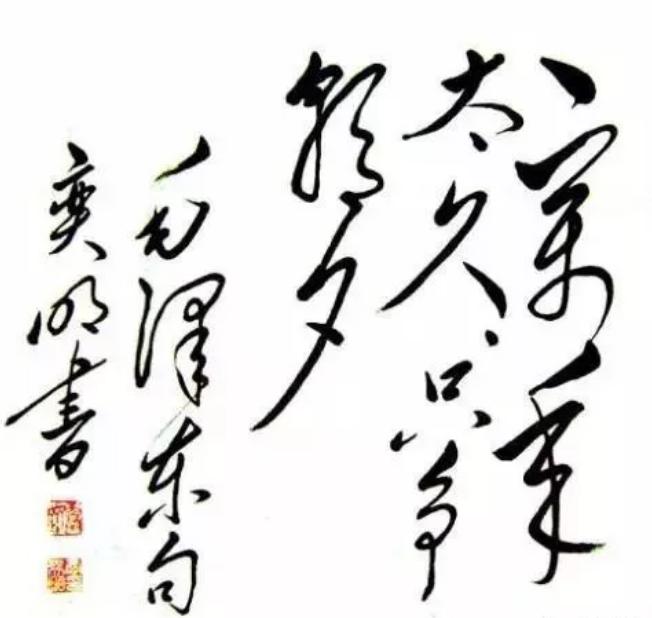 一萬年
太久只争
朝夕
毛澤东句
奕明書